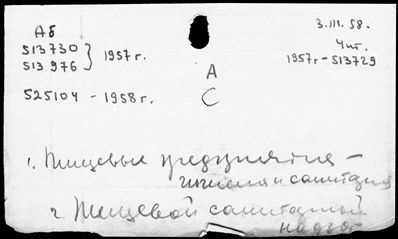 Аб
513730
513976 } 1957 г.
525104 - 1958 г.
А
С
3.III.58.
Чит.
1957 г - 513729
1. Пищевые предприятия -
гигиена и санитария
2. Пищевой санитарный
надзор